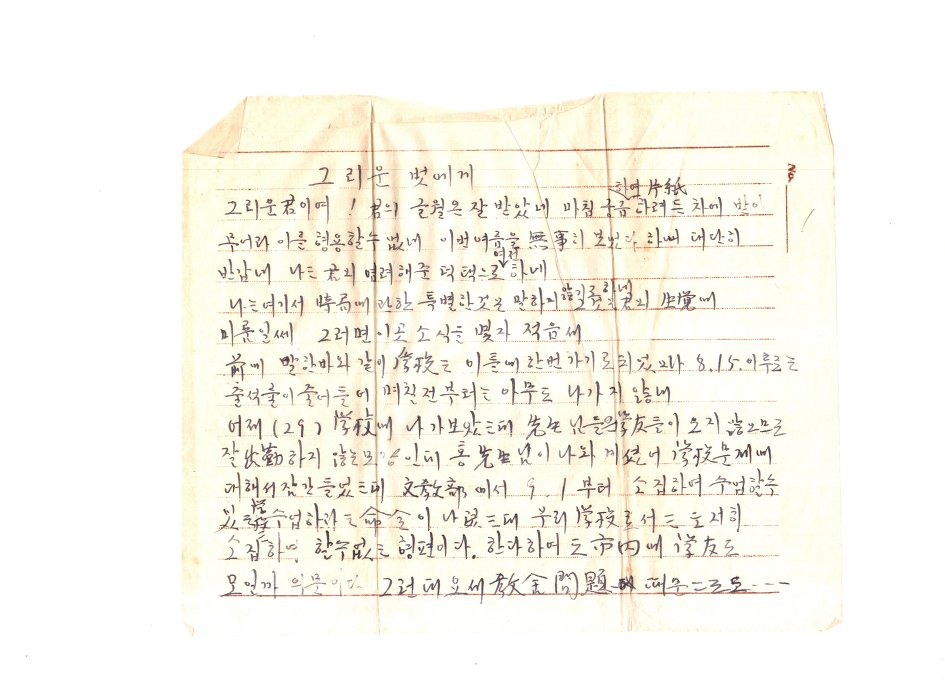 그리운 벗에게
그리운君이여 ! 君의 글월은 잘 받았네 마침 궁금하여 片紙 하려든 차에 받이
무어라 이를 형용할수 없네 이번여름을 無事히 보낸다 하매 대단히
반갑네 나는 君의 염려해준 덕택으로 여전하네
나는여기서 時局에 관한 특별한것은 말하지 않기로하네 그것은 君의 生覚에
미룸일쎄 그러면이곳 소식을 몇자 적음세
前에 말한바와 같이 学校는 이틀에 한번 가기로되었으나 8.15.이후로는
출석률이 줄어들어 며칠전부터는 아무도 나가지 않네
어제 (29) 学校에 나가보았는데 先生님들의 学友들이 오지 않으므로
잘 出勤하지 않는모양인데 홍先生님이 나와 계셨어 学校문제에
대해서잠간 들었는데 文教部에서 9.1 부터 소집하여 수업할수
있는 学校 수업하라는 命令이 나렸는데 우리 学校로서는 도저히
소집하여 할수없는 형편이다. 한다하여도 市内에 学友도
모일까 의문이다 그런데 요세 教金問題 때문으로도----